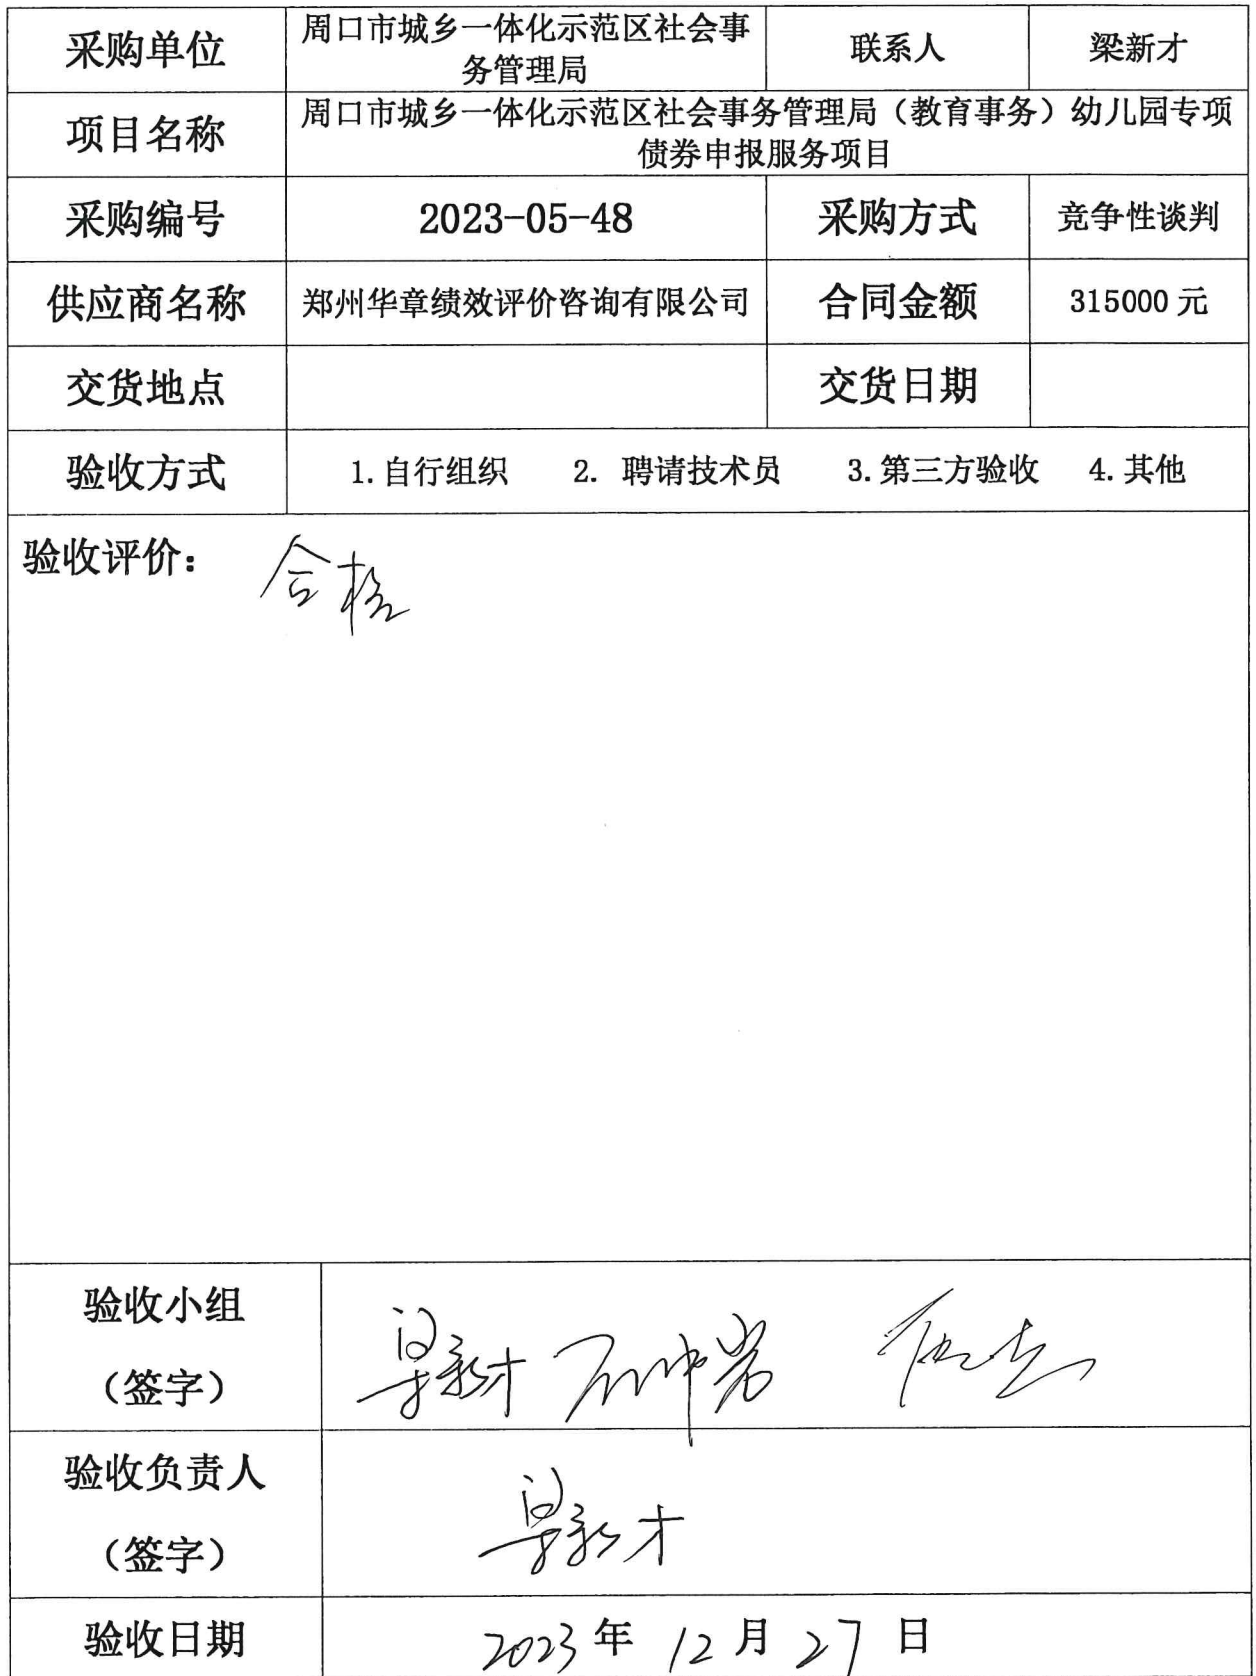 采购单位
周口市城乡一体化示范区社会事
务管理局
联系人
梁新才
项目名称
周口市城乡一体化示范区社会事务管理局（教育事务）幼儿园专项
债券申报服务项目
采购编号
2023-05-48
采购方式
竞争性谈判
供应商名称
郑州华章绩效评价咨询有限公司
合同金额
315000 元
交货地点
交货日期
验收方式
1.自行组织 2. 聘请技术员 3.第三方验收 4.其他
验收评价：
合格
验收小组
（签字）
梁新才
验收负责人
（签字）
梁新才
验收日期
2023 年 12 月 27 日